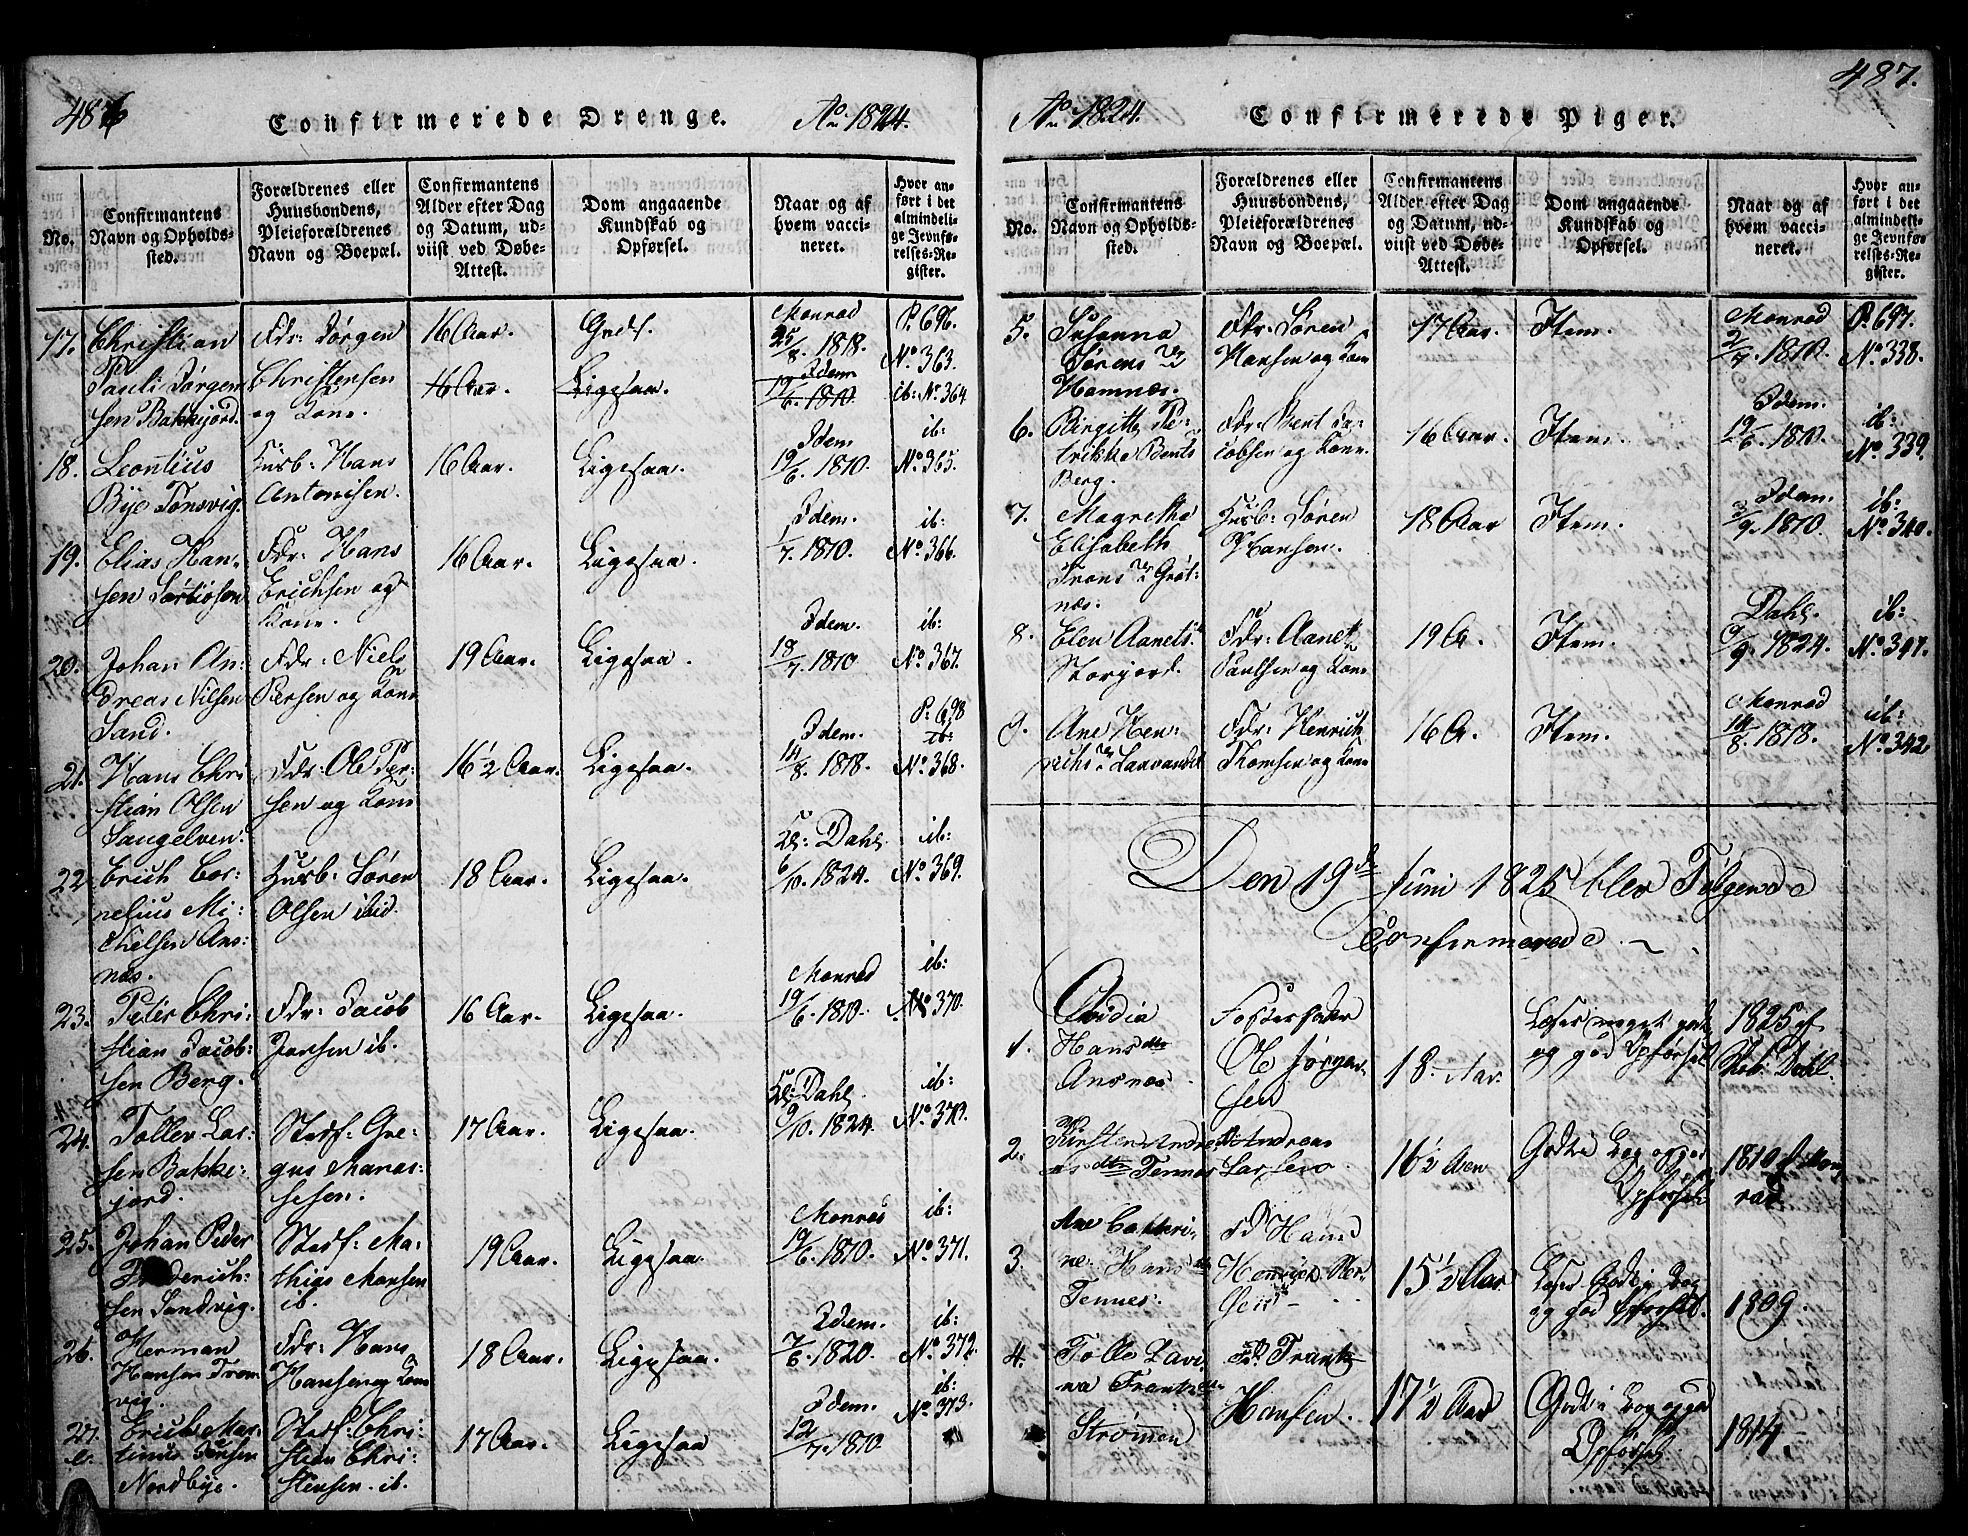 486
Confirmerede Drenge.
Ao 1824.
No.
Confirmantens
Navn og Opholds-
sted.
Forældrenes eller
Huusbondens,
Pleieforældrenes
Navn og Boepæl.
Confirmantens
Alder efter Dag
og Datum, ud-
viist ved Døbe-
Attest.
Dom angaaende
Kundskab og
Opførsel.
Naar og af
hvem vacci-
neret.
Hvor an-
ført i det
almindeli-
ge Jevnfø-
relses-Re-
gister.
17. Christian
Pauli Jørgen
sen Bakkejord.
Fdr: Jørgen
Christensen
og Kone.
16 Aar.
Godf.
Monrad
25/8. 1818.
P. 696.
No. 363.
16 Aar.
Ligesaa.
Idem
19/6. 1810.
ib: No. 364
18. Leontius
Bye Tønsvig.
Husb: Hans
Antonisen.
16 Aar.
Ligesaa.
Idem
19/6. 1810.
ib:
No. 365.
19. Elias Han-
sen
Fdr: Hans
Erichsen og
Kone.
16 Aar.
Ligesaa.
Idem.
1/7. 1810.
ib:
No. 366.
20. Johan An-
dreas Nilsen
Sand.
Fdr: Niels
Persen og Kone
19 Aar.
Ligesaa.
Idem.
18/7. 1810
ib:
No. 367.
21. Hans Chri
stian Olsen
Sangelven.
Fdr: Ole Per-
sen og Kone
16 1/2 Aar.
Ligesaa.
Idem.
14/8. 1818.
P. 698
ib:
No. 368.
22. Erich Cor-
nelius Mi-
chelsen Ans-
næs.
Husb: Søren
Olsen ibid.
18 Aar.
Ligesaa.
Dahl
6/10. 1824.
ib:
No. 369.
23. Peter Chri-
stian Jacob-
sen Berg.
Fdr: Jacob
Jansen ib.
16 Aar.
Ligesaa.
Monrad
19/6. 1810.
ib:
No. 370.
24. Toller Lar-
sen Bakke-
jord.
Stedf: Gre-
gus Manas-
sesen.
17 Aar.
Ligesaa.
Dahl.
9/10. 1824
ib:
No. 373.
25. Johan Peder
Frederich-
sen Sandvig.
Stedf: Ma-
thias Monsen
ib.
19 Aar.
Ligesaa.
Monrad
19/6. 1810.
ib:
No. 371.
26. Herman
Hansen Trom
vig.
Fdr: Hans
Hansen og Kone
18 Aar.
Ligesaa.
Idem.
7/6. 1820.
ib:
No. 372.
27. Erich Mar-
tinus Jensen
Nordbye.
Stedf: Chri-
stian Chri-
stensen ib.
17 Aar.
Ligesaa
Idem.
12/7. 1810
ib:
No. 373.
487.
Ao 1824.
Confirmerede Piger.
No.
Confirmantens
Navn og Opholds-
sted.
Forældrenes eller
Huusbondens,
Pleieforældrenes
Navn og Boepæl.
Confirmantens
Alder efter Dag
og Datum, ud-
viist ved Døbe-
Attest.
Dom angaaende
Kundskab og
Opførsel.
Naar og af
hvem vacci-
neret.
Hvor an-
ført i det
almindeli-
ge Jevnfø-
relses-Re-
gister.
5. Susanna
Sørens Dr
Hamnes.
Fdr: Søren
Hansen og Kone
17 Aar.
Item.
Monrad
2/7. 1810.
P. 697.
No. 338.
6. Birgitte
Berg.
Fdr: Bent Ja-
cobsen og Kone
16 Aar.
Item.
Idem.
19/6. 1810.
ib:
No. 339.
7. Magretha
Elisabeth
Trons Dr Grøt-
næs.
Husb: Søren
Hansen.
18 Aar
Item.
Idem.
3/9. 1810.
ib:
No. 340.
8. Elen Aanets
Storjord.
Fdr: Aanet
Paulsen og Kone
19 A.
Item.
Dahl.
9/9. 1824.
ib:
No. 341.
9. Ane Hen-
richs Dr
Fdr: Henrich
Thomsen og Kone
16 A.
Item.
Monrad
14/8. 1818.
ib:
No. 342
Den 19de Juni 1825 blev Følgende
Confirmerede
1. Ovidia
Hansdtr
Ansnæs.
Fosterfader
Ole Jørgen-
sen
18 Aar
Læser meget godt
og god Opførsel
1825 af
Dahl.
2. Kirsten Andre-
asdtr Tennes
Andreas
Larsen.
16 1/2 Aar
Godt i Bog og god
Opførsel
1810 af Mon
rad.
3. Ane Cathri-
ne Hansdtr
Tennes.
Fdr Hans
Henrich
15 1/2 Aar
Læser Godt i Bog
og god Opførsel.
1809.
4. Tolle Lavi
na Frantzdtr
Strømmen
Fdr. Frantz
Hansen.
17 1/2 Aar
Godt i Bog og god
Opførsel
1814.